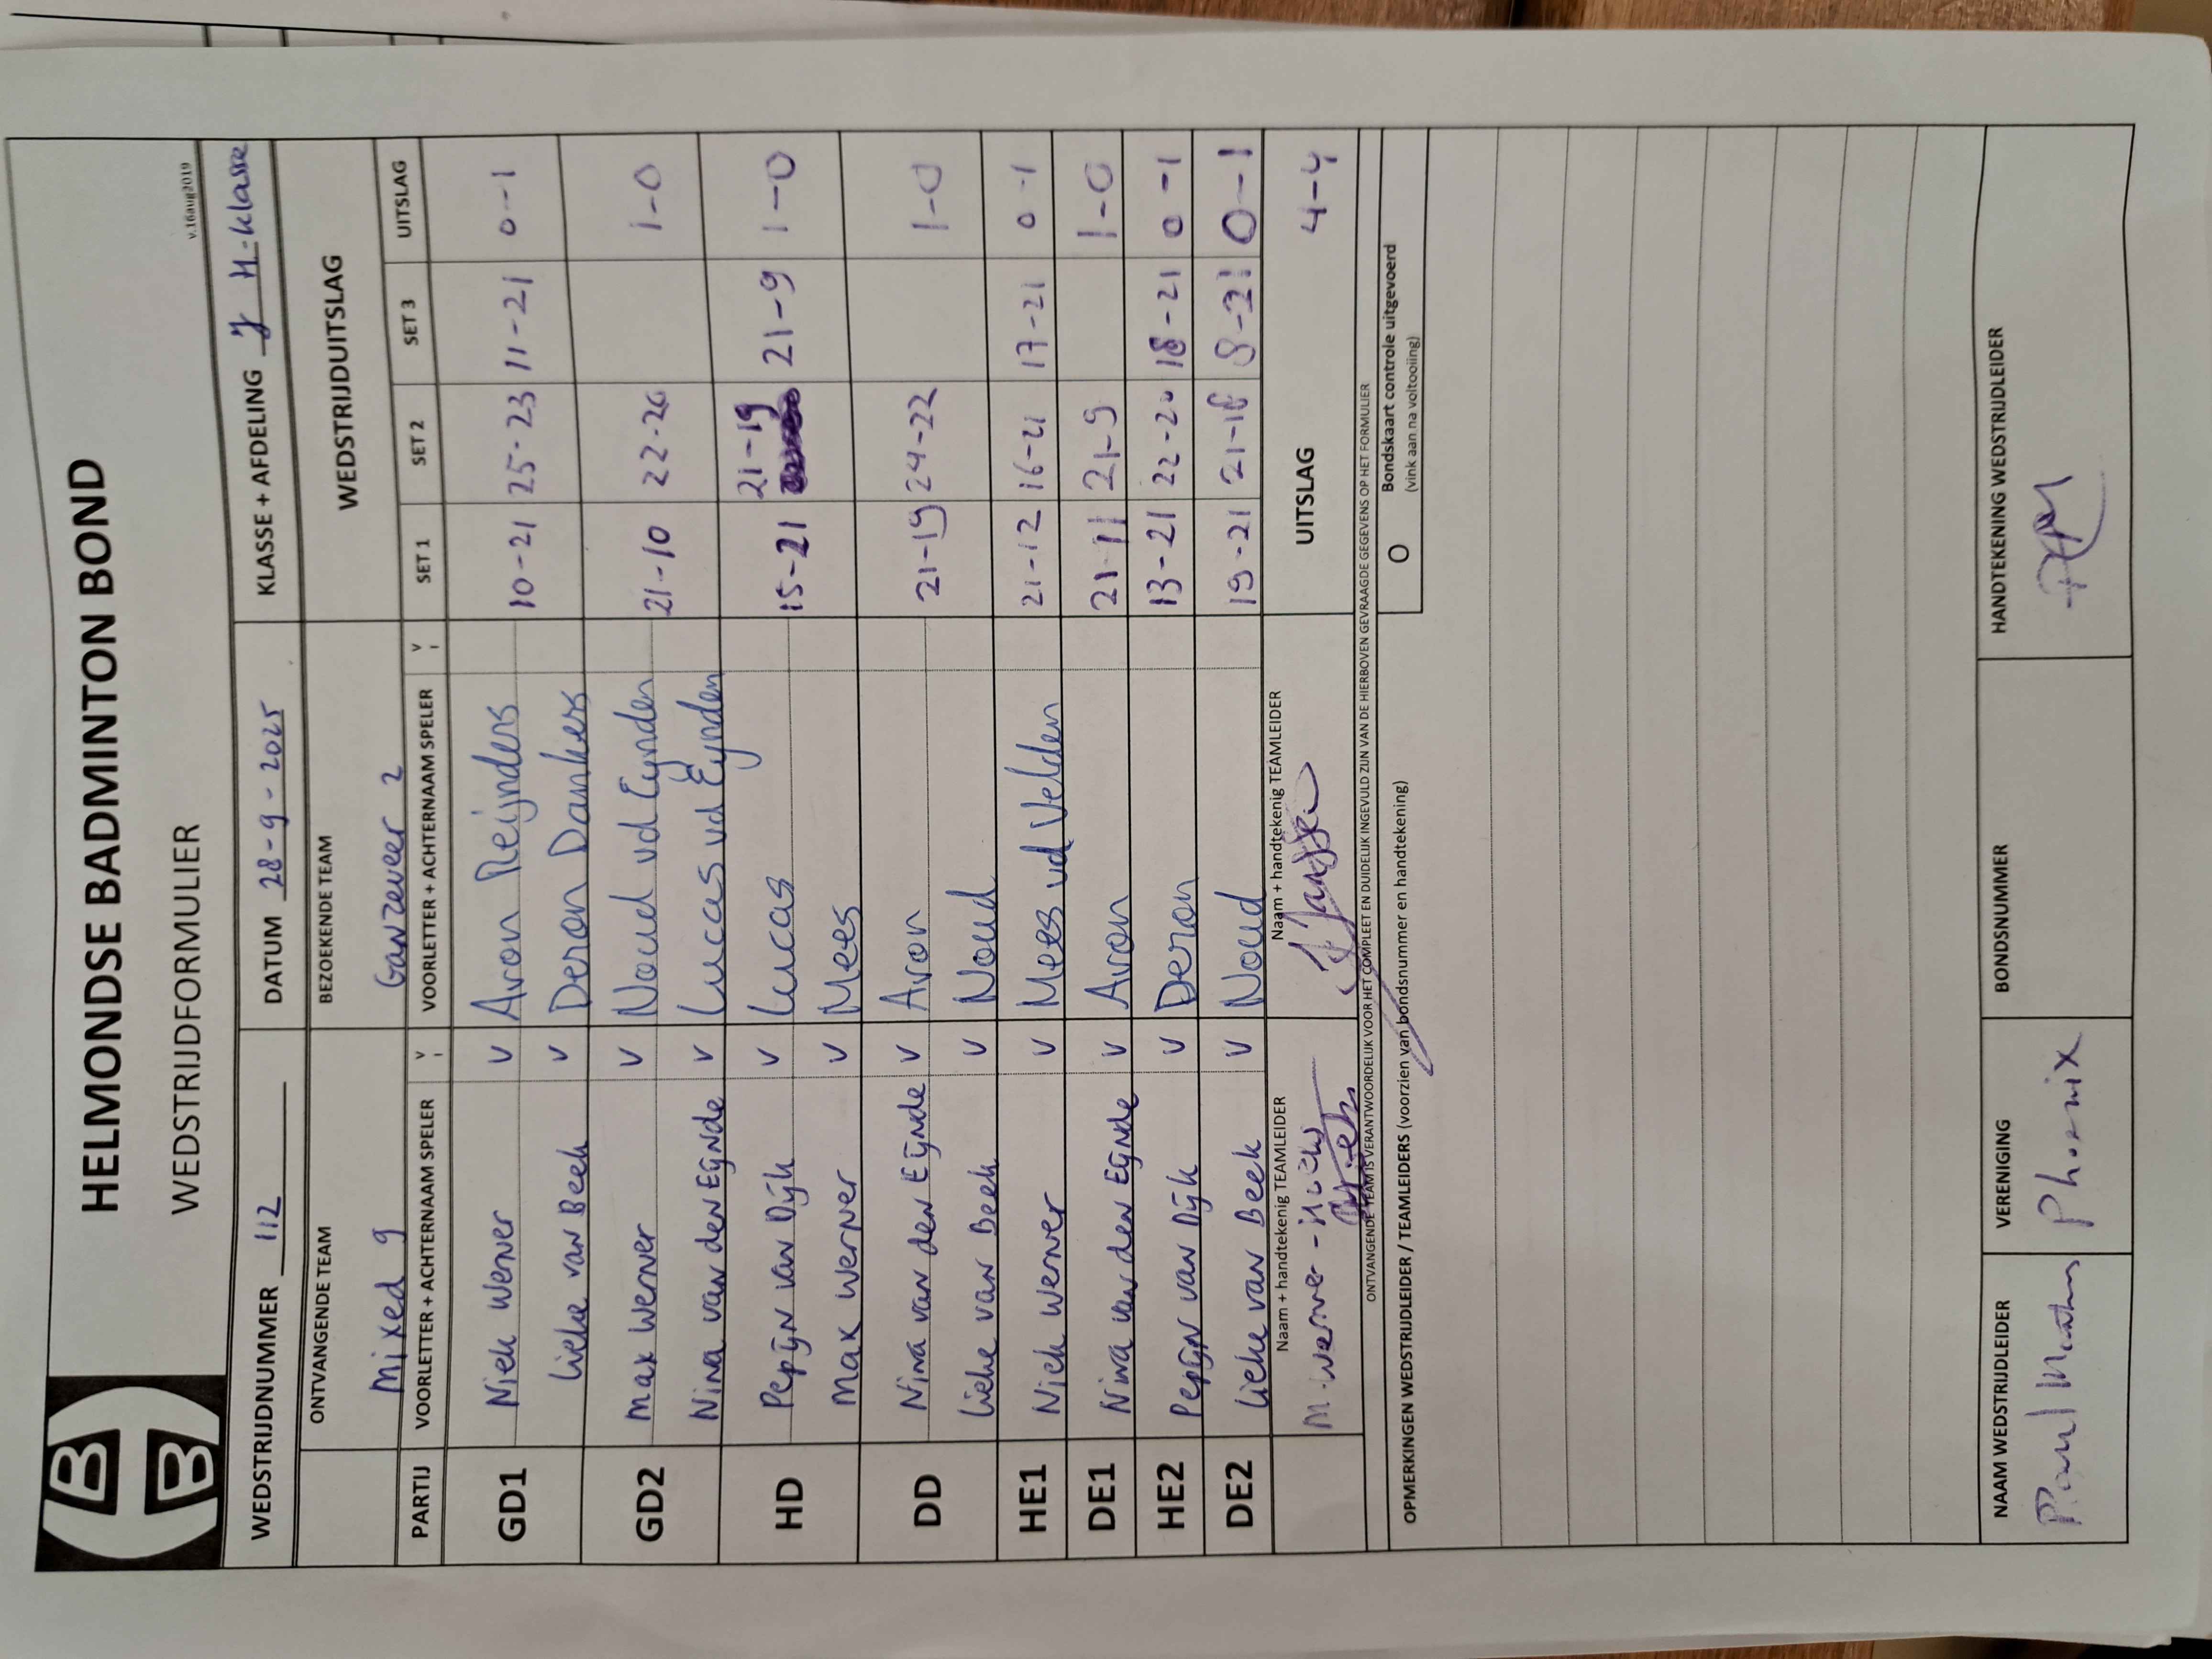 HELMONDSE BADMINTON BOND
WEDSTRIJDFORMULIER
v.16aug2019
WEDSTRIJDNUMMER 112 DATUM 28-9-2025 KLASSE + AFDELING J H-klasse
ONTVANGENDE TEAM BEZOEKENDE TEAM WEDSTRIJDUITSLAG
Mixed 9 Ganzeveer 2
PARTIJ VOORLETTER + ACHTERNAAM SPELER V VOORLETTER + ACHTERNAAM SPELER V SET 1 SET 2 SET 3 UITSLAG
GD1 Niek Werner V Aron Reijnders 10-21 25-23 11-21 0-1
Lieke van Beek V Deron Dankers
GD2 Max Werner V Noud vd Eynden 21-10 22-20 1-0
Nina van den Eijnde V Lucas vd Eynden
HD Pepijn van Dijk V Lucas 15-21 21-19 21-9 1-0
Max Werner V Mees
DD Nina van den Eijnde V Aron 21-19 24-22 1-0
Lieke van Beek V Noud
HE1 Niek Werner V Mees vd Velden 21-12 16-21 17-21 0-1
DE1 Nina van den Eijnde V Aron 21-11 21-9 1-0
HE2 Pepijn van Dijk V Deron 13-21 22-20 18-21 0-1
DE2 Lieke van Beek V Noud 19-21 21-18 8-21 0-1
Naam + handtekenig TEAMLEIDER Naam + handtekenig TEAMLEIDER UITSLAG 4-4
M. Werner Janssen
ONTVANGENDE TEAM IS VERANTWOORDELIJK VOOR HET COMPLEET EN DUIDELIJK INGEVULD ZIJN VAN DE HIERBOVEN GEVRAAGDE GEGEVENS OP HET FORMULIER
OPMERKINGEN WEDSTRIJDLEIDER / TEAMLEIDERS (voorzien van bondsnummer en handtekening)
O Bondskaart controle uitgevoerd
(vink aan na voltooiing)
NAAM WEDSTRIJDLEIDER VERENIGING BONDSNUMMER HANDTEKENING WEDSTRIJDLEIDER
Paul Phoenix